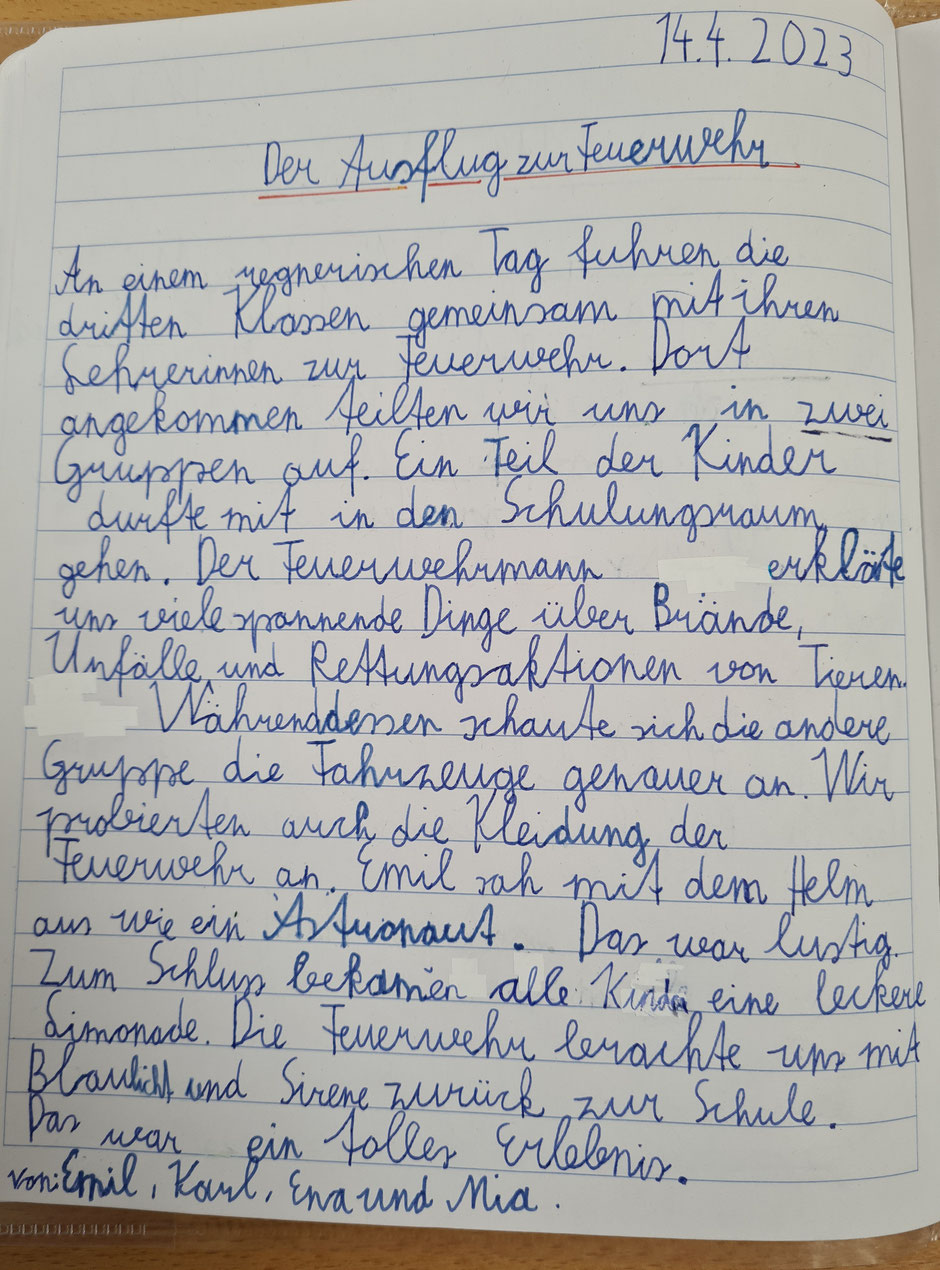 14.4.2023
Der Ausflug zur Feuerwehr
An einem regnerischen Tag fuhren die
dritten Klassen gemeinsam mit ihren
Lehrerinnen zur Feuerwehr. Dort
angekommen teilten wir uns in zwei
Gruppen auf. Ein Teil der Kinder
durfte mit in den Schulungsraum
gehen. Der Feuerwehrmann erklärte
uns viele spannende Dinge über Brände,
Unfälle und Rettungsaktionen von Tieren.
Währenddessen schaute sich die andere
Gruppe die Fahrzeuge genauer an. Wir
probierten auch die Kleidung der
Feuerwehr an. Emil sah mit dem Helm
aus wie ein Astronaut. Das war lustig.
Zum Schluss bekamen alle Kinder eine leckere
Limonade. Die Feuerwehr brachte uns mit
Blaulicht und Sirene zurück zur Schule.
Das war ein tolles Erlebnis.
von: Emil, Karl, Ena und Mia.